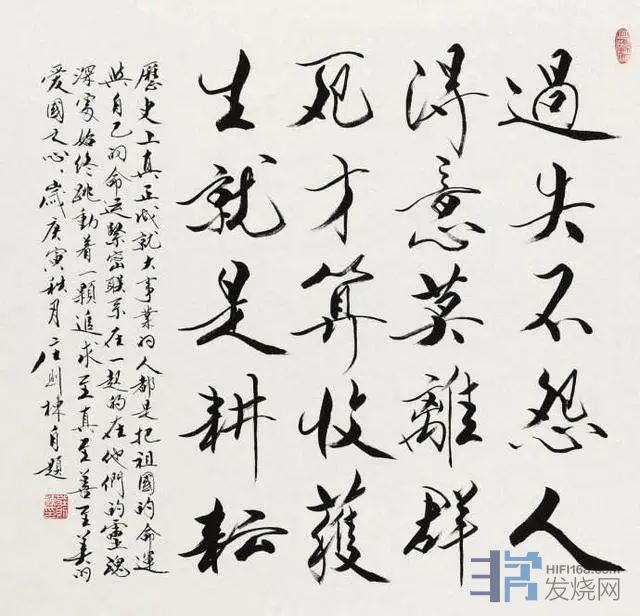 過失不怨人
得意莫離群
死才算收獲
生就是耕耘
歷史上真正成就大事業的人都是把祖國的命運
與自己的命运緊密联系在一起的在他們的靈魂
深處始终跳動着一顆追求至真至善至美的
爱國之心、歲庚寅秋月庄则棟自題
HIFI168.com
发烧网